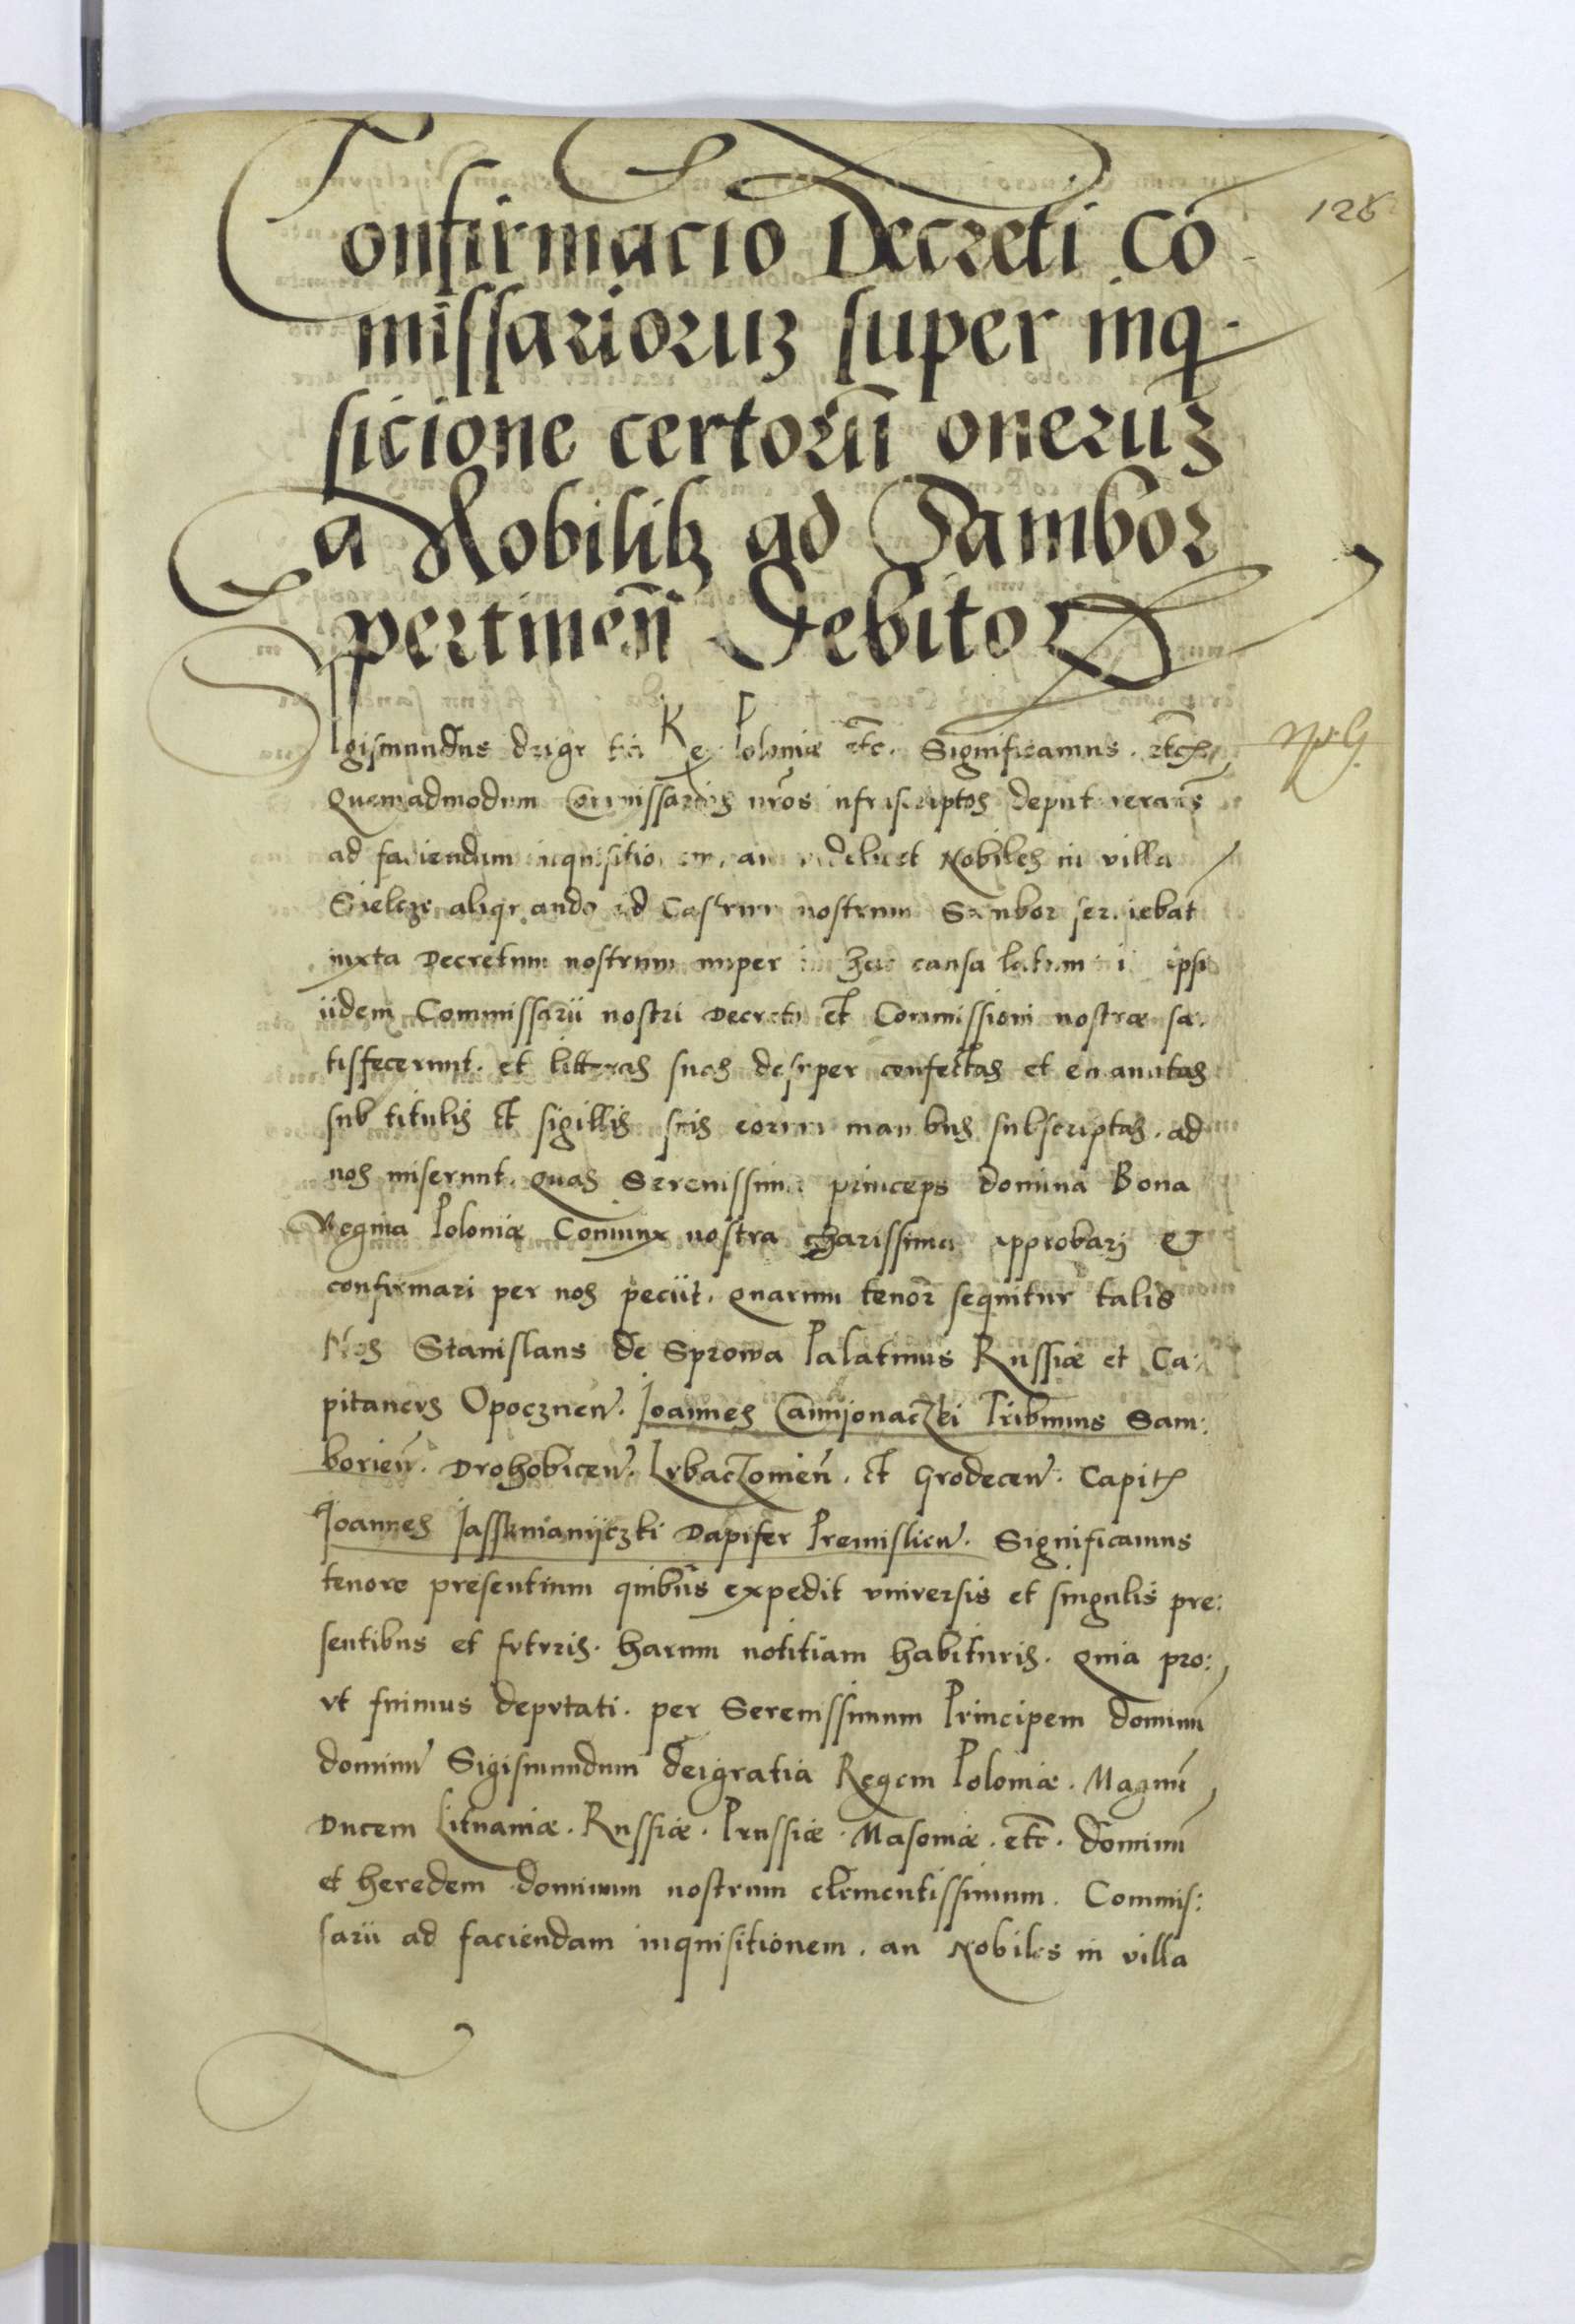 126
Confirmacio Decreti Cõ
missarioruz super inq
sicione certorũ oneruz
a Nobilibz ad Sambor
pertineñ debitor
Sigismundus dei gratia Rex Poloniæ etc. Significamus. etc.
Quemadmodum Commissarios nr̃os infrascriptos deputaveramus
ad faciendam inquisitionem, an videlicet Nobiles in villa
Sielcze aliquando ad Castrum nostrum Sambor serviebãt
iuxta Decretum nostrum nuper in hac causa latum ipsi
iidem Commissarii nostri Decreto et Commissioni nostræ sa.
tisfecerunt. et litteras suas desuper confectas et emanatas
sub titulis et sigillis suis eorum manibus subscriptas. ad
nos miserunt. quas Serenissima princeps domina Bona
Regina Poloniæ Coniunx nostra charissima approbari &
confirmari per nos peciit. quarum tenor sequitur talis
Nos Stanislaus de Sprowa Palatinus Russiæ et Ca:
pitaneus Opocznen̄. Joannes Camijonaczki Tribunus Sam:
borien̄. Drohobicen̄. Lubaczonien̄. et Grodecen̄. Capit
Joannes Jasseniamijczki Dapifer Premislien̄. Significamus
tenore presentium quibus expedit universis et singulis pre:
sentibus et futuris. harum notitiam habituris. quia pro:
vt fuimus deputati. per Serenissimum Principem dominũ
dominũ Sigismundum dei gratia Regem Poloniæ. Magnũ
Ducem Lituaniæ. Russiæ. Prussiæ. Masoniæ. etc. dominũ
et heredem dominum nostrum clementissimum. Commis:
sarii ad faciendam inquisitionem. an Nobiles in villa